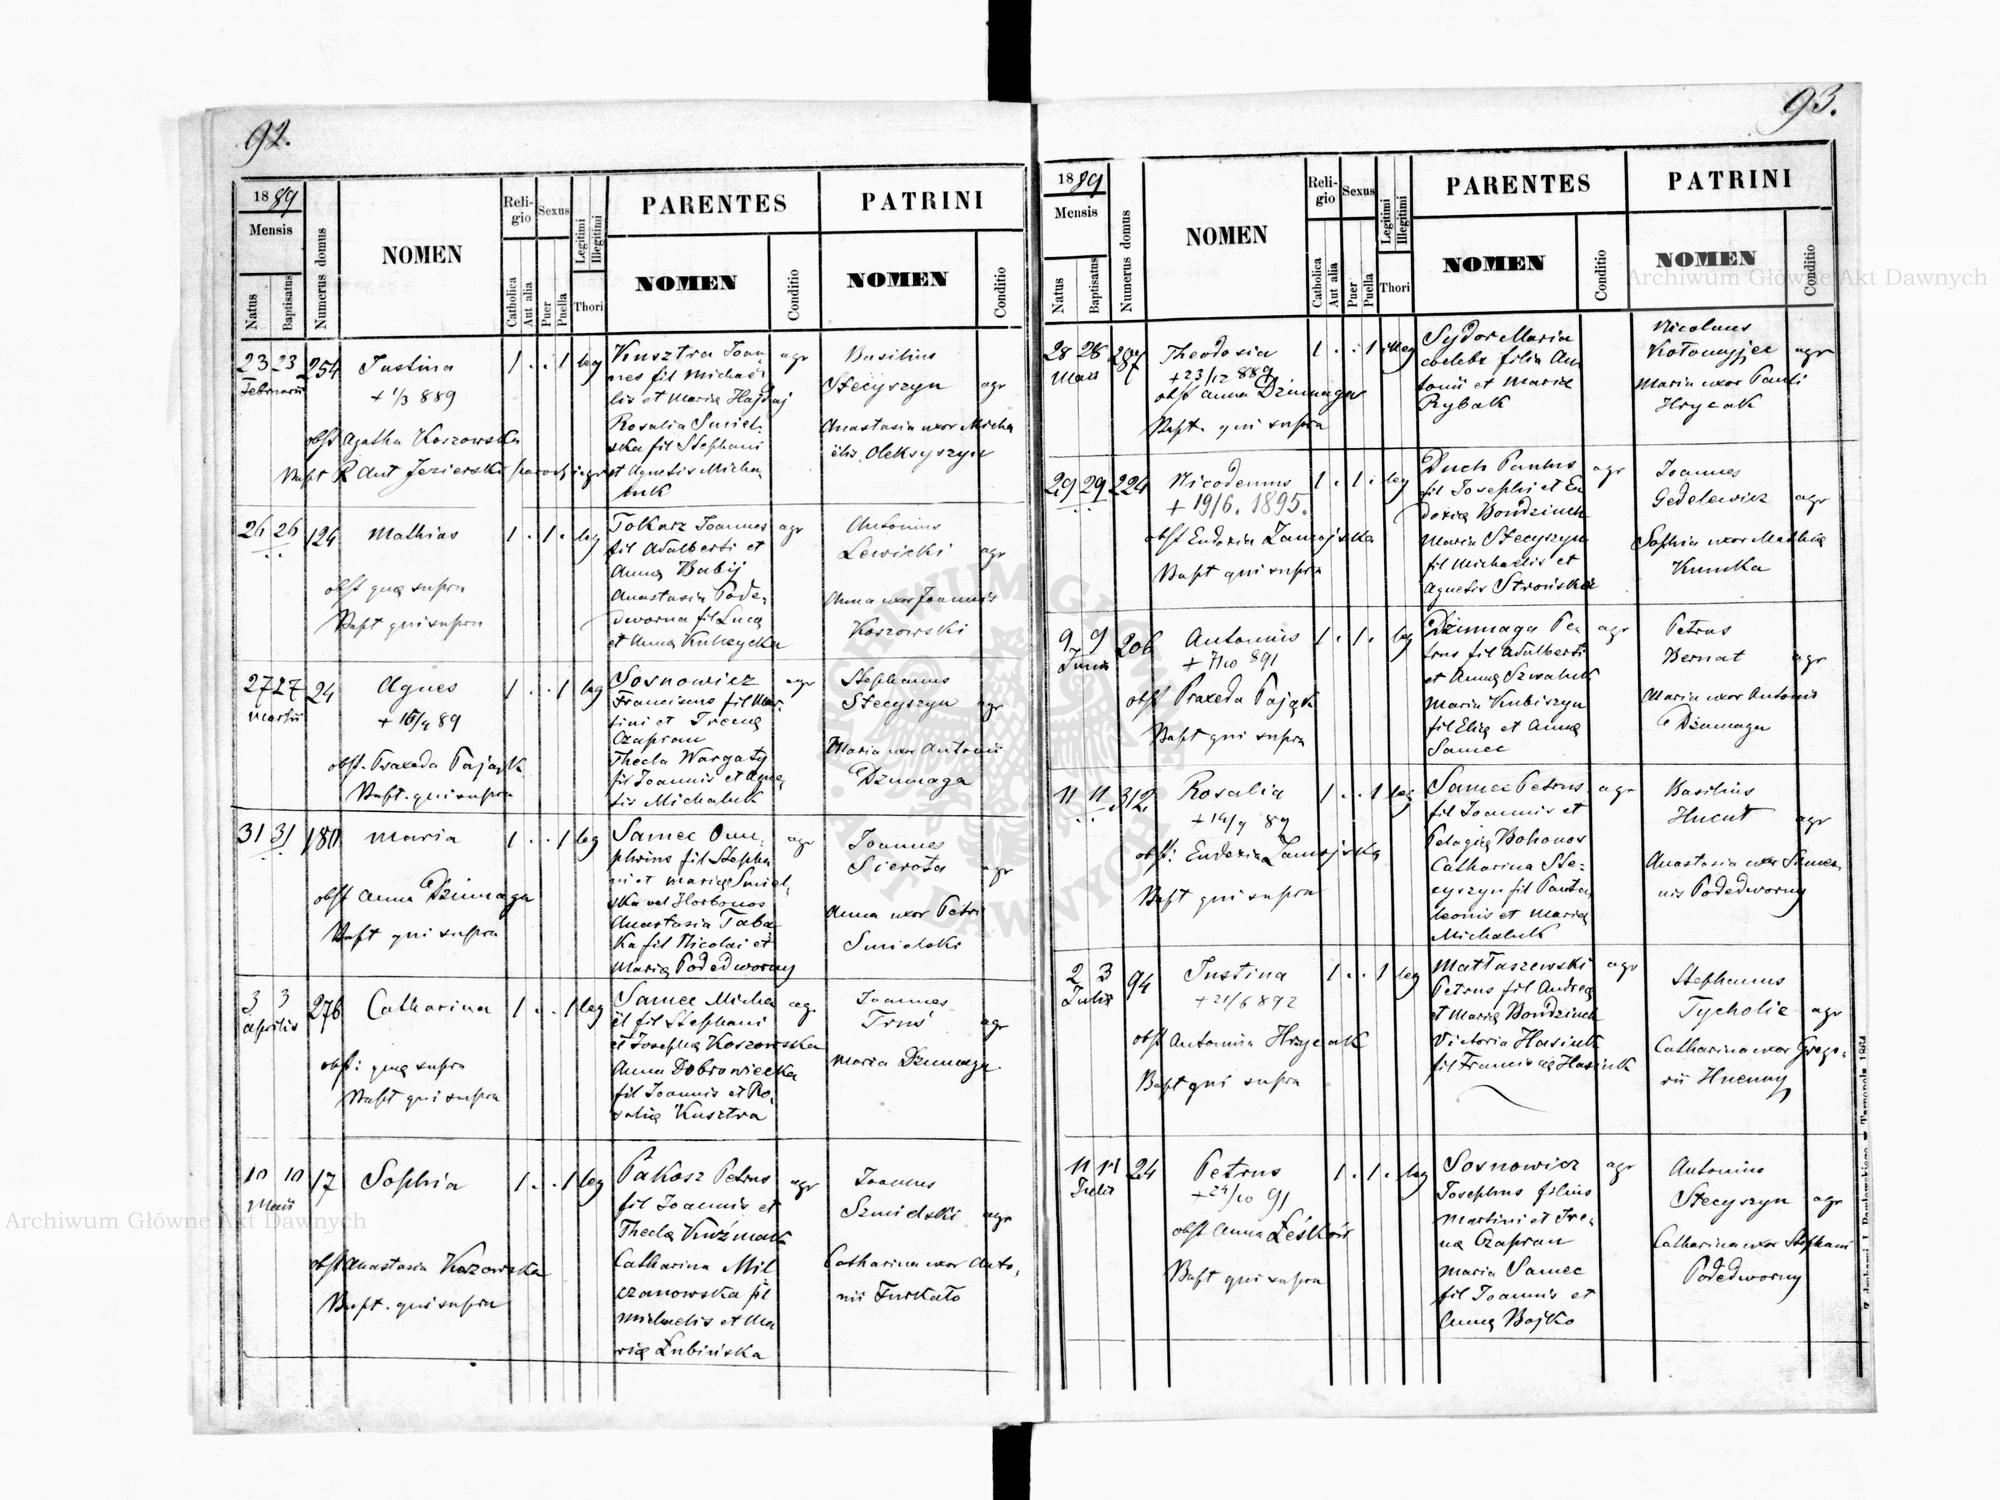 92.
1889
Mensis
Natus
Baptisatus
Numerus domus
NOMEN
Religio
Catholica
Aut alia
Sexus
Puer
Puella
Legitimi
Illegitimi
Thori
PARENTES
NOMEN
Conditio
PATRINI
NOMEN
Conditio
23 23 254 Justina 1 . . 1 leg
Februarii
+ 1/3 889
obst Agatha Koszowska
Bapt R Ant Jezierski paroch
Kusztra Joan- agr
nes fil Michae-
lis et Maria Hajdaj
Rosalia Smiel-
ska fil Stephani
et Agnetis Micha-
luk
Basilius
Stecyszyn agr
Anastasia uxor Micha
elis Oleksyszyn
26 26 124 Mathias 1 . 1 . leg
obst quę supra
Bapt qui supra
Tokarz Joannes agr
fil Adalberti et
Annę Babij
Anastasia Pode-
dworna fil Lucę
et Annę Kulczycka
Antonius
Lewicki agr
Anna uxor Joannis
Koszowski
27 27 24 Agnes 1 . . 1 leg
Martii
+ 16/4 89
obst. Praxeda Pająk
Bapt. qui supra
Sosnowicz agr
Franciscus fil Mar-
tini et Irenę
Czapran
Thecla Wargaty
fil Joannis et Agne
tis Michaluk
Stephanus
Stecyszyn agr
Maria uxor Antonii
Dżumaga
31 31 180 Maria 1 . . 1 leg
obst Anna Dżumaga
Bapt qui supra
Samec Onu- agr
phrius fil Stepha
ni et Marię Smiel-
ska vel Horbonos
Anastasia Taba
ka fil Nicolai et
Marię Podedworny
Joannes
Sierota agr
Anna uxor Petri
Smielski
3 3 276 Catharina 1 . . 1 leg
Aprilis
obst: quę supra
Bapt qui supra
Samec Micha agr
ël fil Stephani
et Josephę Koszowska
Anna Dobrowiecka
fil Joannis et Ro-
salię Kusztra
Joannes
Truś agr
Maria Dżumaga
10 10 17 Sophia 1 . . 1 leg
Maii
obst Anastasia Kozowska
Bapt. qui supra
Pakosz Petrus agr
fil Joannis et
Theclę Kuźmak
Catharina Mil
czanowska fil
Michaelis et Ma
rię Łubińska
Joannes
Szmielski agr
Catharina uxor Anto-
nii Furkało
93.
1889
Mensis
Natus
Baptisatus
Numerus domus
NOMEN
Religio
Catholica
Aut alia
Sexus
Puer
Puella
Legitimi
Illegitimi
Thori
PARENTES
NOMEN
Conditio
PATRINI
NOMEN
Conditio
28 28 287 Theodosia 1 . . 1 illeg
Maii
+ 23/12 889
obst Anna Dżumaga
Bapt. qui supra
Sydor Maria
coelebs filia An
tonii et Marię
Rybak
Nicolaus
Kołomyjec agr
Maria uxor Pauli
Hrycak
29 29 224 Nicodemus 1 . 1 . leg
+ 19/6. 1895.
obst Eudoxia Zamojska
Bapt qui supra
Duch Paulus agr
fil Josephi et Eu
doxię Bondziuch
Maria Stecyszyn
fil Michaelis et
Agnetis Strońska
Joannes
Gedelewicz agr
Sophia uxor Mathię
Kumka
9 9 206 Antonius 1 . 1 . leg
Junii
+ 7/10 891
obst Praxeda Pająk
Bapt qui supra
Dżumaga Pe- agr
trus fil Adalberti
et Annę Szwaluk
Maria Kubiszyn
fil Elię et Annę
Samec
Petrus
Bernat agr
Maria uxor Antonii
Dżumaga
11 11 312 Rosalia 1 . . 1 leg
+ 14/9 89
obst: Eudoxia Zamojska
Bapt qui supra
Samec Petrus agr
fil Joannis et
Pelagię Bohonos
Catharina Ste-
cyszyn fil Panta-
leonis et Marię
Michaluk
Basilius
Hucuł agr
Anastasia uxor
Podedworny
2 3 94 Justina 1 . . 1 leg
Julii
+ 21/6 892
obst Antonina Hrycak
Bapt qui supra
Małtaszewski agr
Petrus fil Andreę
et Marię Bondziuch
Victoria Hasiuk
fil Franciscę Hasiuk
Stephanus
Tycholiz agr
Catharina uxor Grego-
rii Hucuny
11 11 24 Petrus 1 . 1 . leg
Julii
+ 24/10 91
obst Anna Leśków
Bapt qui supra
Sosnowicz agr
Josephus filius
Martini et Ire-
nę Czapran
Maria Samec
fil Joannis et
Annę Bojko
Antonius
Stecyszyn agr
Catharina uxor Stephani
Podedworny
Z drukarni J. Pawłowskiego — Tarnopol 1864
Archiwum Główne Akt Dawnych
Archiwum Główne Akt Dawnych
ARCHIWUM GŁÓWNE AKT DAWNYCH